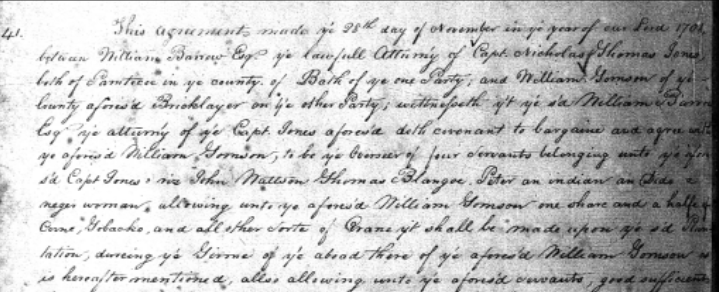 41. This agreement made ye 28th day of November in ye year of our Lord 1701
between William Barrow Esqr ye lawfull Attorny of Capt. Nicholas Thomas Jones,
both of Pamtico in ye county of Bath of ye one Party; and William Gomson of ye
County aforesd Bricklayer on ye other Party; witnesseth yt ye sd William Barrow
Esqr ye attorny of ye Capt. Jones aforesd doth covenant to bargaine and agree with
ye aforesd William Gomson, to be ye overseer of four servants belonging unto ye
sd Capt Jones: viz John Thomas Blangoe, Peter an indian an Dido a
neger woman, allowing unto ye aforesd William Gomson one share and a halfe of
Corne, Tobacko, and all other sorts of Graine yt shall be made upon ye sd Plan
tation, dureing ye Tirme of ye aboad there of ye aforesd William Gomson as
is hereafter mentioned, allso allowing unto ye aforesd servants, good sufficient